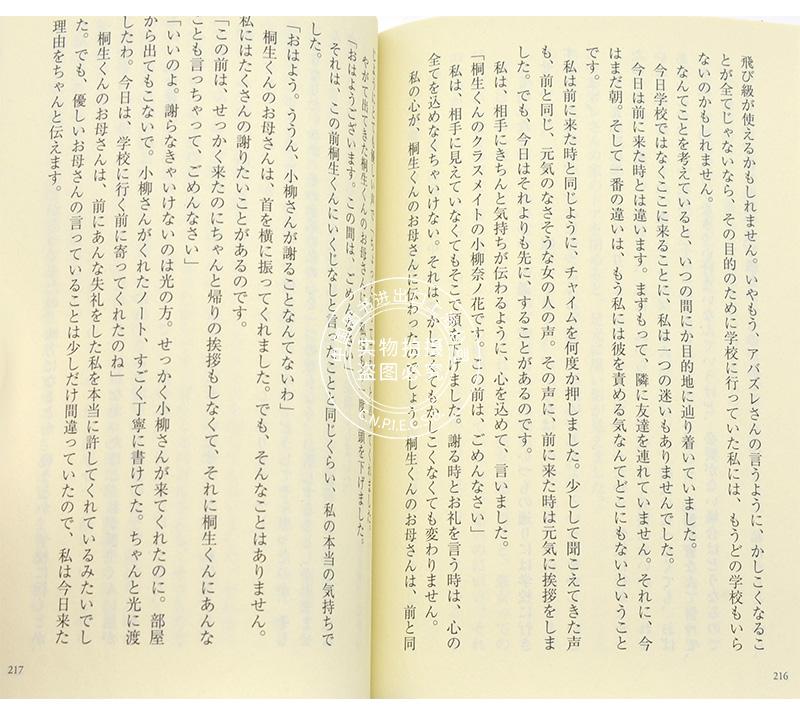 飛び級が使えるかもしれません。いやもう、アバズレさんの言うように、かしこくなるこ
とが全てじゃないなら、その目的のために学校に行っていた私には、もうどの学校もいら
ないのかもしれません。
なんてことを考えていると、いつの間にか目的地に辿り着いていました。
今日学校ではなくここに来ることに、私は一つの迷いもありませんでした。
今日は前に来た時とは違います。まずもって、隣に友達を連れていません。それに、今
はまだ朝。そして一番の違いは、もう私には彼を責める気なんてどこにもないということ
です。
私は前に来た時と同じように、チャイムを何度か押しました。少しして聞こえてきた声
も、前と同じ、元気のなさそうな女の人の声。その声に、前に来た時は元気に挨拶をしま
した。でも、今日はそれよりも先に、することがあるのです。
私は、相手にきちんと気持ちが伝わるように、心を込めて、言いました。
「桐生くんのクラスメイトの小柳奈ノ花です。この前は、ごめんなさい」
私は、相手に見えていなくてもそこで頭を下げました。謝る時とお礼を言う時は、心の
全てを込めなくちゃいけない。それは、かしこくてもかしこくなくても変わりません。
私の心が、桐生くんのお母さんに伝わったのでしょう。桐生くんのお母さんは、前と同
216
やがて出てきた桐生くんのお母さんに、私はもう一度、頭を下げました。
「おはようございます。この間は、ごめんなさい」
それは、この前桐生くんにいくじなしと言ったことと同じくらい、私の本当の気持ちで
した。
「おはよう。ううん、小柳さんが謝ることなんてないわ」
桐生くんのお母さんは、首を横に振ってくれました。でも、そんなことはありません。
私にはたくさんの謝りたいことがあるのです。
「この前は、せっかく来たのにちゃんと帰りの挨拶もしなくて、それに桐生くんにあんな
ことも言っちゃって、ごめんなさい」
「いいのよ。謝らなきゃいけないのは光の方。せっかく小柳さんが来てくれたのに。部屋
から出てもこないで。小柳さんがくれたノート、すごく丁寧に書けてた。ちゃんと光に渡
したわ。今日は、学校に行く前に寄ってくれたのね」
桐生くんのお母さんは、前にあんな失礼をした私を本当に許してくれているみたいでし
た。でも、優しいお母さんの言っていることは少しだけ間違っていたので、私は今日来た
理由をちゃんと伝えます。
217
实物拍摄
盗图必究